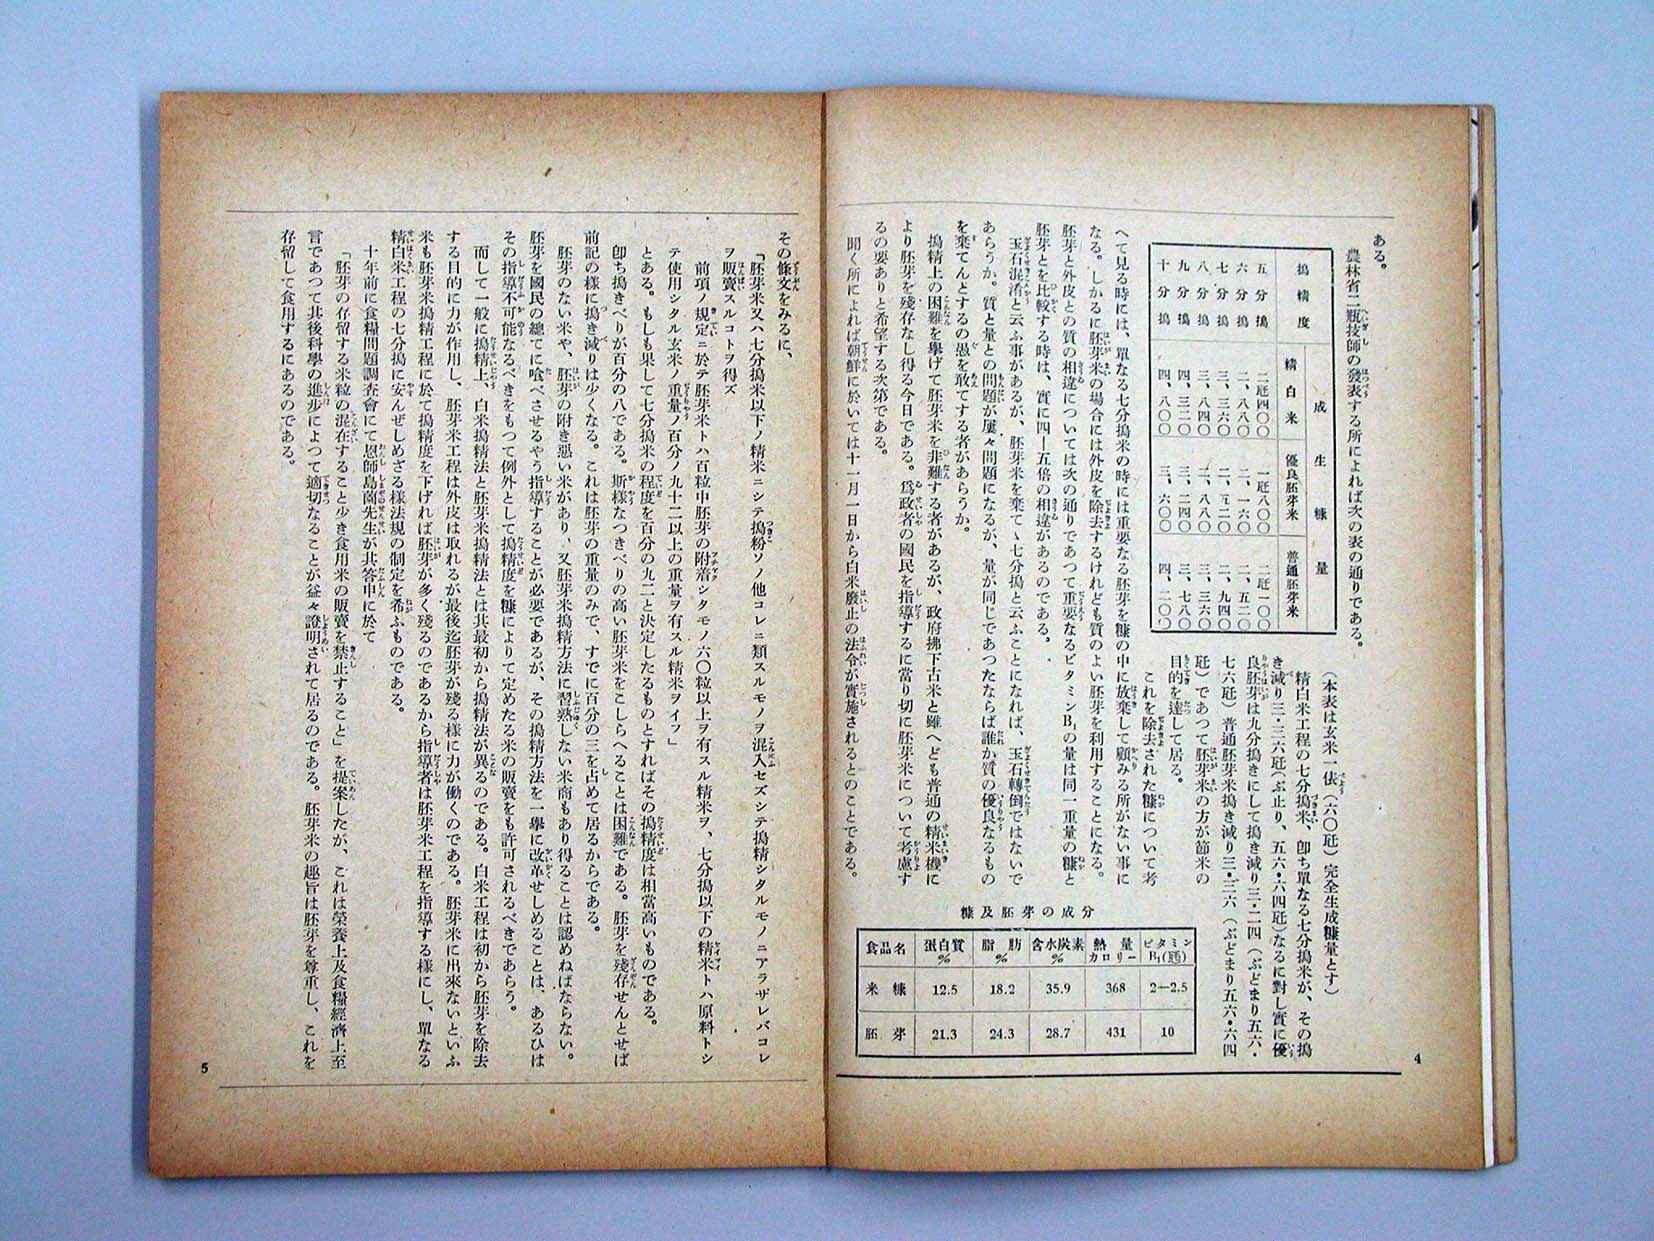 ある。
農林省二瓶技師の發表する所によれば次の表の通りである。
搗精度
成生糠量
精白米
優良胚芽米
普通胚芽米
五分搗 二瓩四〇〇 一瓩八〇〇 二瓩一〇〇
六分搗 二、八八〇 二、一六〇 二、五二〇
七分搗 三、三六〇 二、五二〇 二、九四〇
八分搗 三、八四〇 二、八八〇 三、三六〇
九分搗 四、三二〇 三、二四〇 三、七八〇
十分搗 四、八〇〇 三、六〇〇 四、二〇〇
(本表は玄米一俵(六〇瓩)完全生成糠量とす)
精白米工程の七分搗米、卽ち單なる七分搗米が、その搗
き減り三・三六瓩(ぶ止り、五六・六四瓩)なるに對し實に優
良胚芽は九分搗きにして搗き減り三・二四(ぶどまり五六・
七六瓩)普通胚芽米搗き減り三・三六(ぶどまり五六・六四
瓩)であつて胚芽米の方が節米の
目的を達して居る。
これを除去された糠について考
へて見る時には、單なる七分搗米の時には重要なる胚芽を糠の中に放棄して顧みる所がない事に
なる。しかるに胚芽米の場合には外皮を除去するけれども質のよい胚芽を利用することになる。
胚芽と外皮との質の相違については次の通りであつて重要なるビタミンB₁の量は同一重量の糠と
胚芽とを比較する時は、實に四―五倍の相違があるのである。
玉石混淆と云ふ事があるが、胚芽米を棄てゝ七分搗と云ふことになれば、玉石轉倒ではないで
あらうか。質と量との問題が屢々問題になるが、量が同じであつたならば誰か質の優良なるもの
を棄てんとするの愚を敢てする者があらうか。
搗精上の困難を擧げて胚芽米を非難する者があるが、政府拂下古米と雖へども普通の精米機に
より胚芽を殘存なし得る今日である。爲政者の國民を指導するに當り切に胚芽米について考慮す
るの要ありと希望する次第である。
聞く所によれば朝鮮に於いては十一月一日から白米廢止の法令が實施されるとのことである。
糠及胚芽の成分
食品名 蛋白質% 脂肪% 含水炭素% 熱量カロリー ビタミンB₁(瓱)
米糠 12.5 18.2 35.9 368 2—2.5
胚芽 21.3 24.3 28.7 431 10
4
その條文をみるに、
「胚芽米又ハ七分搗米以下ノ精米ニシテ搗粉ソノ他コレニ類スルモノヲ混入セズシテ搗精シタルモノニアラザレバコレ
ヲ販賣スルコトヲ得ズ
前項ノ規定ニ於テ胚芽米トハ百粒中胚芽ノ附着シタモノ六〇粒以上ヲ有スル精米ヲ、七分搗以下の精米トハ原料トシ
テ使用シタル玄米ノ重量ノ百分ノ九十二以上の重量ヲ有スル精米ヲイフ」
とある。もしも果して七分搗米の程度を百分の九二と決定したるものとすればその搗精度は相當高いものである。
卽ち搗きべりが百分の八である。斯樣なつきべりの高い胚芽米をこしらへることは困難である。胚芽を殘存せんとせば
前記の樣に搗き減りは少くなる。これは胚芽の重量のみで、すでに百分の三を占めて居るからである。
胚芽のない米や、胚芽の附き惡い米があり、又胚芽米搗精方法に習熟しない米商もあり得ることは認めねばならない。
胚芽を國民の總てに喰べさせるやう指導することが必要であるが、その搗精方法を一擧に改革せしめることは、あるひは
その指導不可能なるべきをもつて例外として搗精度を糠によりて定めたる米の販賣をも許可されるべきであらう。
而して一般に搗精上、白米搗精法と胚芽米搗精法とは其最初から搗精法が異るのである。白米工程は初から胚芽を除去
する目的に力が作用し、胚芽米工程は外皮は取れるが最後迄胚芽が殘る樣に力が働くのである。胚芽米に出來ないといふ
米も胚芽米搗精工程に於て搗精度を下げれば胚芽が多く殘るのであるから指導者は胚芽米工程を指導する樣にし、單なる
精白米工程の七分搗に安んぜしめざる樣法規の制定を希ふものである。
十年前に食糧問題調査會にて恩師島薗先生が共答申に於て
「胚芽の存留する米粒の混在すること少き食用米の販賣を禁止すること」を提案したが、これは榮養上及食糧經濟上至
言であつて其後科學の進步によつて適切なることが益々證明されて居るのである。胚芽米の趣旨は胚芽を尊重し、これを
存留して食用するにあるのである。
5